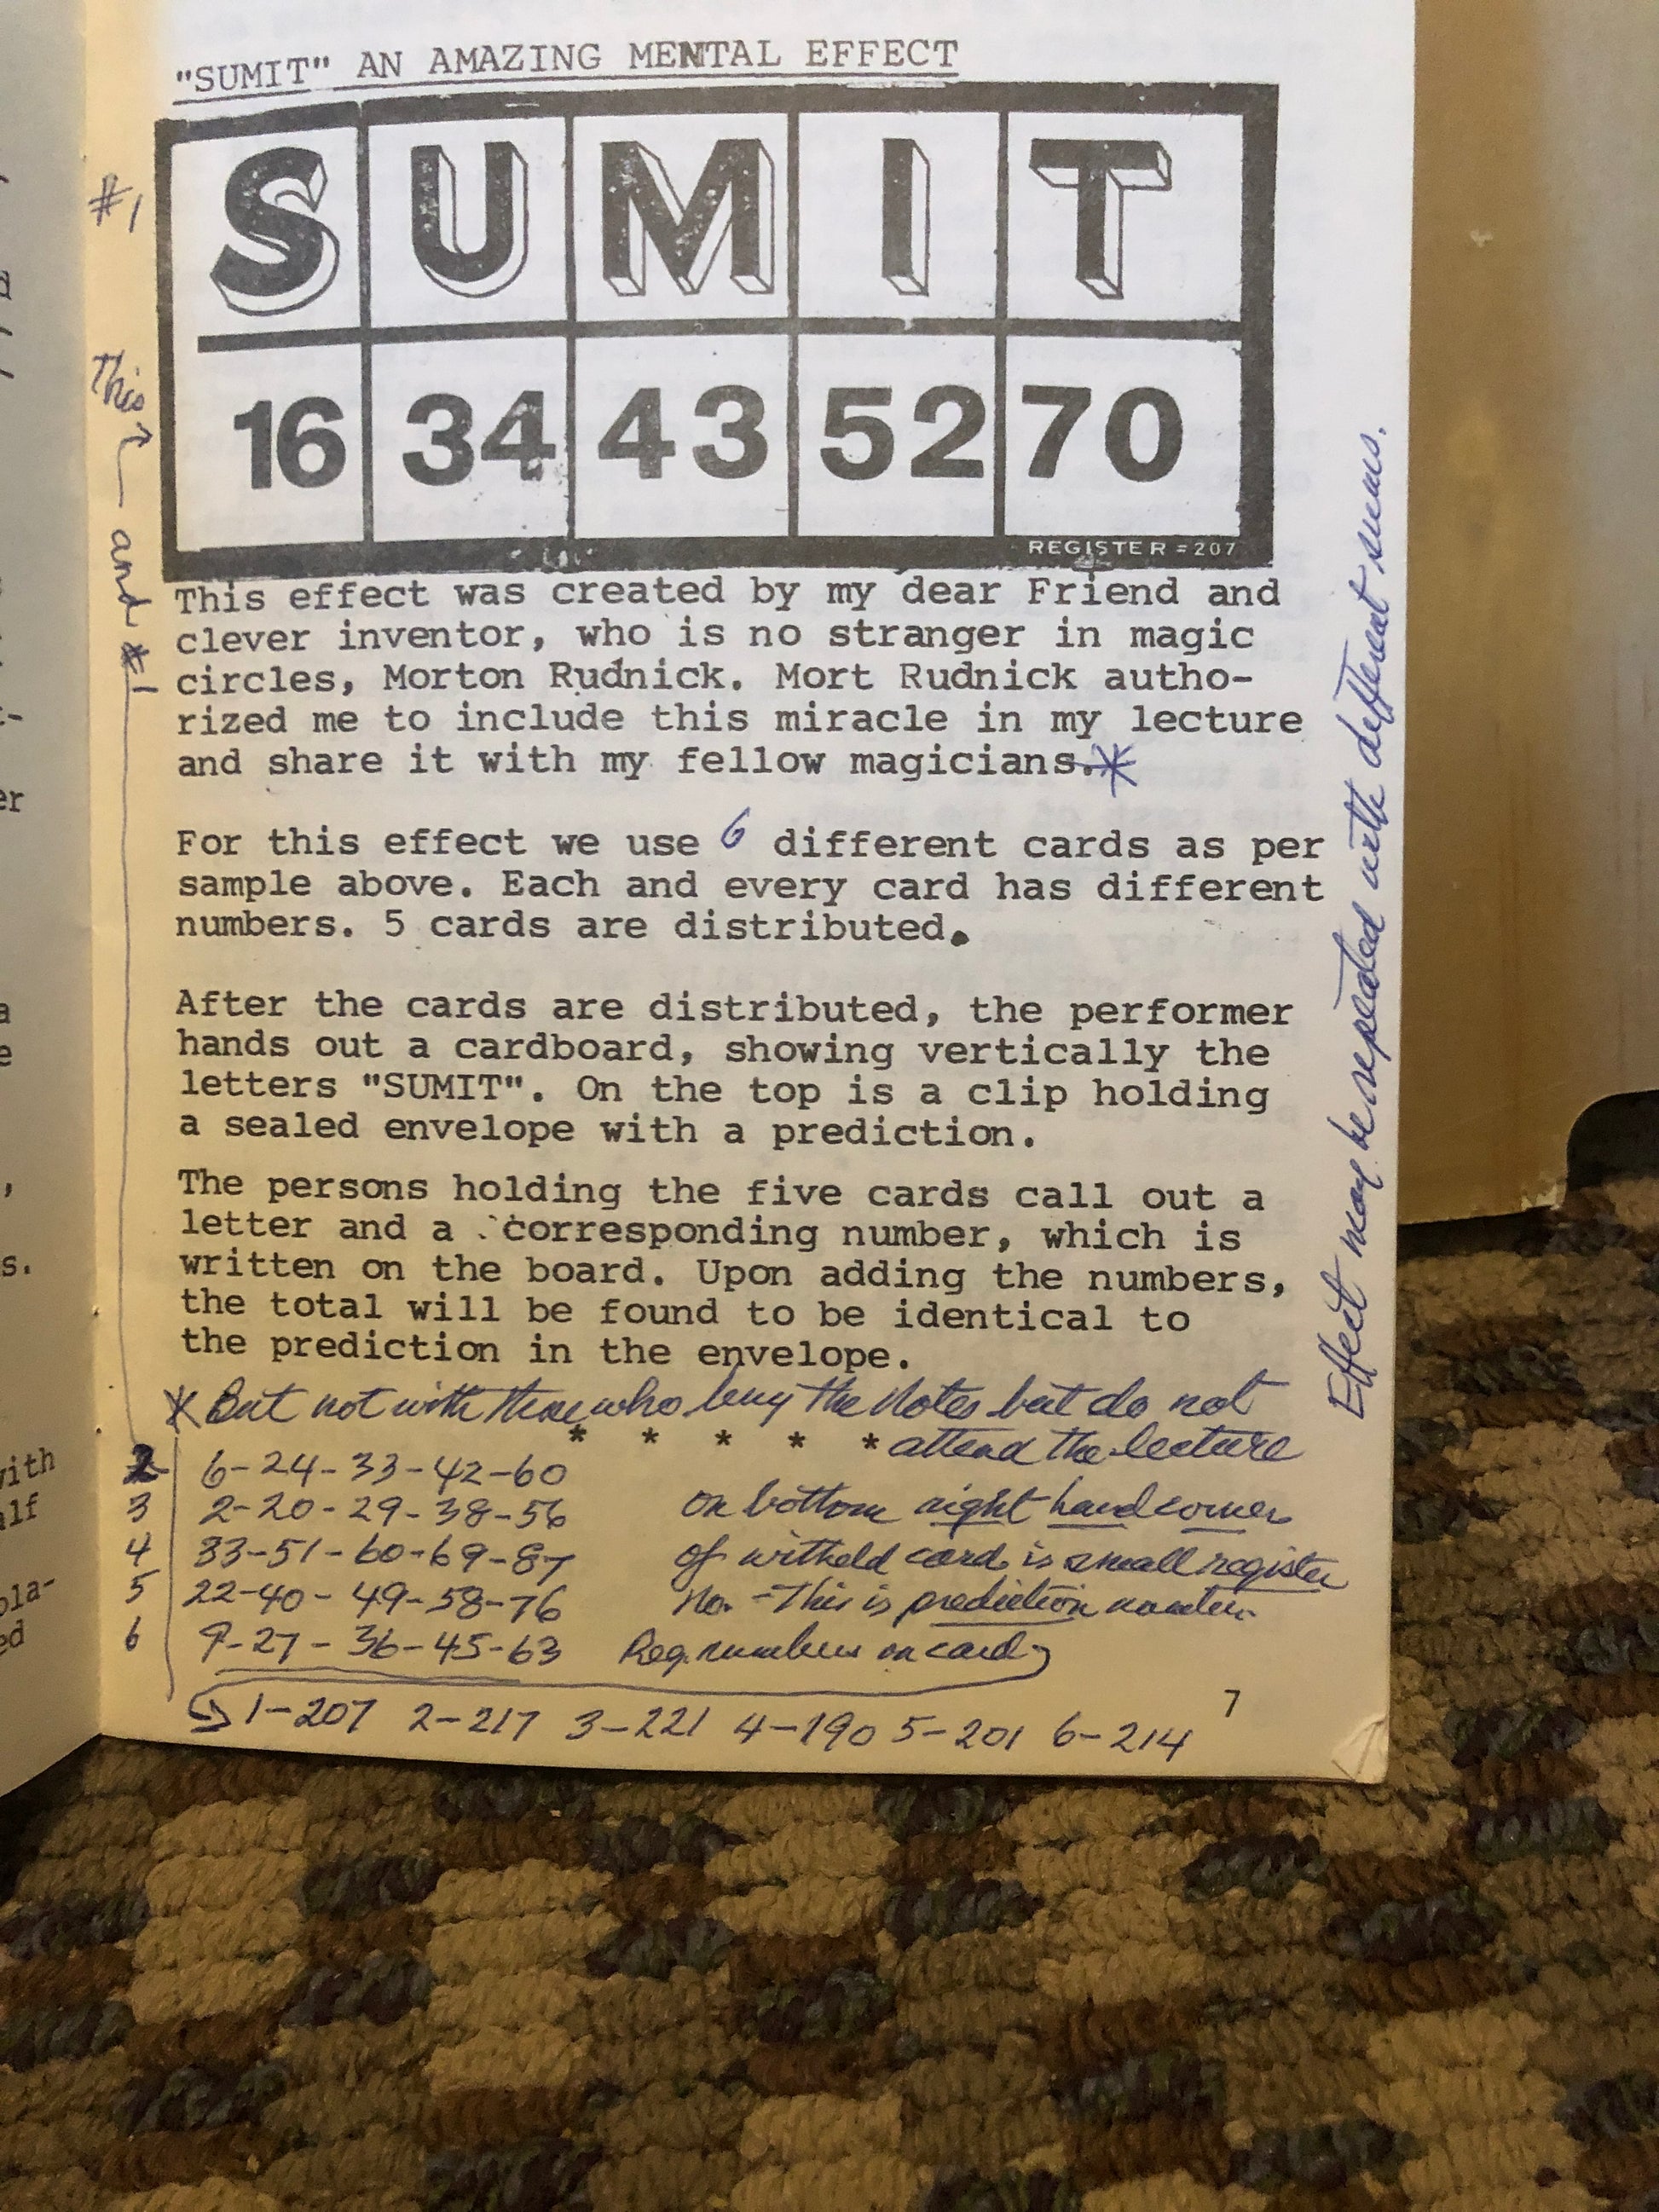 "SUMIT" AN AMAZING MENTAL EFFECT
#1
S U M I T
This
16 34 43 52 70
REGISTER=207
and #1
This effect was created by my dear Friend and
clever inventor, who is no stranger in magic
circles, Morton Rudnick. Mort Rudnick autho-
rized me to include this miracle in my lecture
and share it with my fellow magicians.*
For this effect we use 6 different cards as per
sample above. Each and every card has different
numbers. 5 cards are distributed.
After the cards are distributed, the performer
hands out a cardboard, showing vertically the
letters "SUMIT". On the top is a clip holding
a sealed envelope with a prediction.
The persons holding the five cards call out a
letter and a corresponding number, which is
written on the board. Upon adding the numbers,
the total will be found to be identical to
the prediction in the envelope.
Effect may be repeated with different sums.
* But not with those who buy the Notes but do not
* * * * * attend the lecture
2 6-24-33-42-60
3 2-20-29-38-56 On bottom right hand corner
4 33-51-60-69-87 of witheld card is small register
5 22-40-49-58-76 No. - This is prediction number.
6 9-27-36-45-63 Reg. numbers on card
1-207 2-217 3-221 4-190 5-201 6-214
7
er
s.
with
alf
ola-
ed